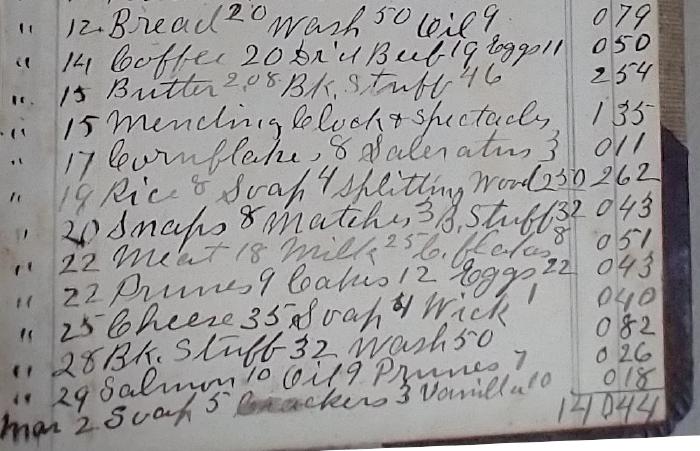 " 12. Bread 20 Wash 50 Oil 9 0 79
" 14 Coffee 20 Dr'd Beef 19 Eggs 11 0 50
" 15 Butter 2,08 Bk. Stuff 46 2 54
" 15 Mending Clock & Spectacles 1 35
" 17 Cornflakes 8 Saleratus 3 0 11
" 19 Rice 8 Soap 4 Splitting Wood 250 2 62
" 20 Snaps 8 Matches 3 B. Stuff 32 0 43
" 22 Meat 18 Milk 25 C. flakes 8 0 51
" 22 Prunes 9 Cakes 12 Eggs 22 0 43
" 25 Cheese 35 Soap 4 Wick 1 0 40
" 28 Bk. Stuff 32 Wash 50 0 82
" 29 Salmon 10 Oil 9 Prunes 7 0 26
Mar 2 Soap 5 Crackers 3 Vanilla 10 0 18
140 44